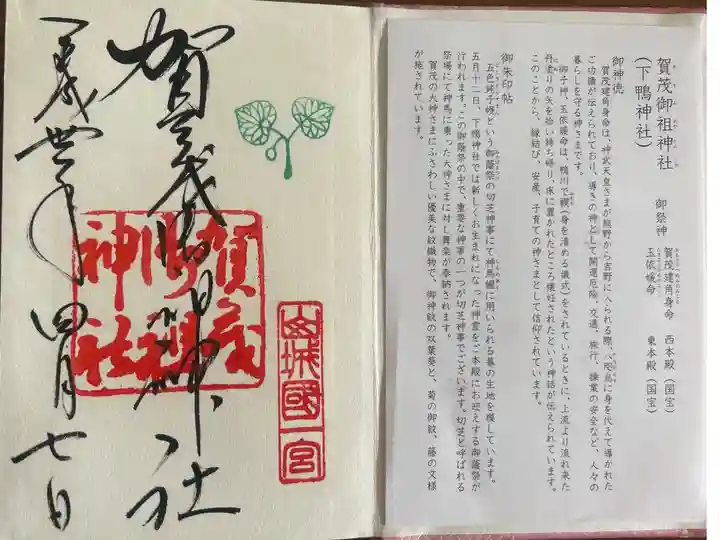 賀茂御祖神社
(下鴨神社)
御祭神
賀茂建角身命 西本殿(国宝)
玉依媛命 東本殿(国宝)
御神徳
賀茂建角身命は、神武天皇さまが熊野から吉野に入られる際、八咫烏に身を代えて導かれた
ご功績が伝えられており、導きの神として開運厄除、交通、旅行、操業の安全など、人々の
暮らしを守る神さまです。
御子神、玉依媛命は、鴨川で禊(身を清める儀式)をされているときに、上流より流れ来た
丹塗りの矢を拾い持ち帰り、床に置かれたところ懐妊されたという神話が伝えられています。
このことから、縁結び、安産、子育ての神さまとして信仰されています。
御朱印帖
五色純子幄という御蔭祭の切芝神事にて神馬幄に用いられる幕の生地を模しています。
五月十二日、下鴨神社では新しくお生まれになった神霊をご本殿にお迎えする御蔭祭が
行われます。この御蔭祭の中で、重要な神事の一つが切芝神事でございます。切芝と呼ばれる
祭場にて神馬に乗った大神さまに対し舞楽が奉納されます。
賀茂の大神さまにふさわしい優美な紋織物で、御神紋の双葉葵と、菊の御紋、藤の文様
が施されています。
山城國一宮
賀茂御祖神社
賀茂御祖神社
四月七日